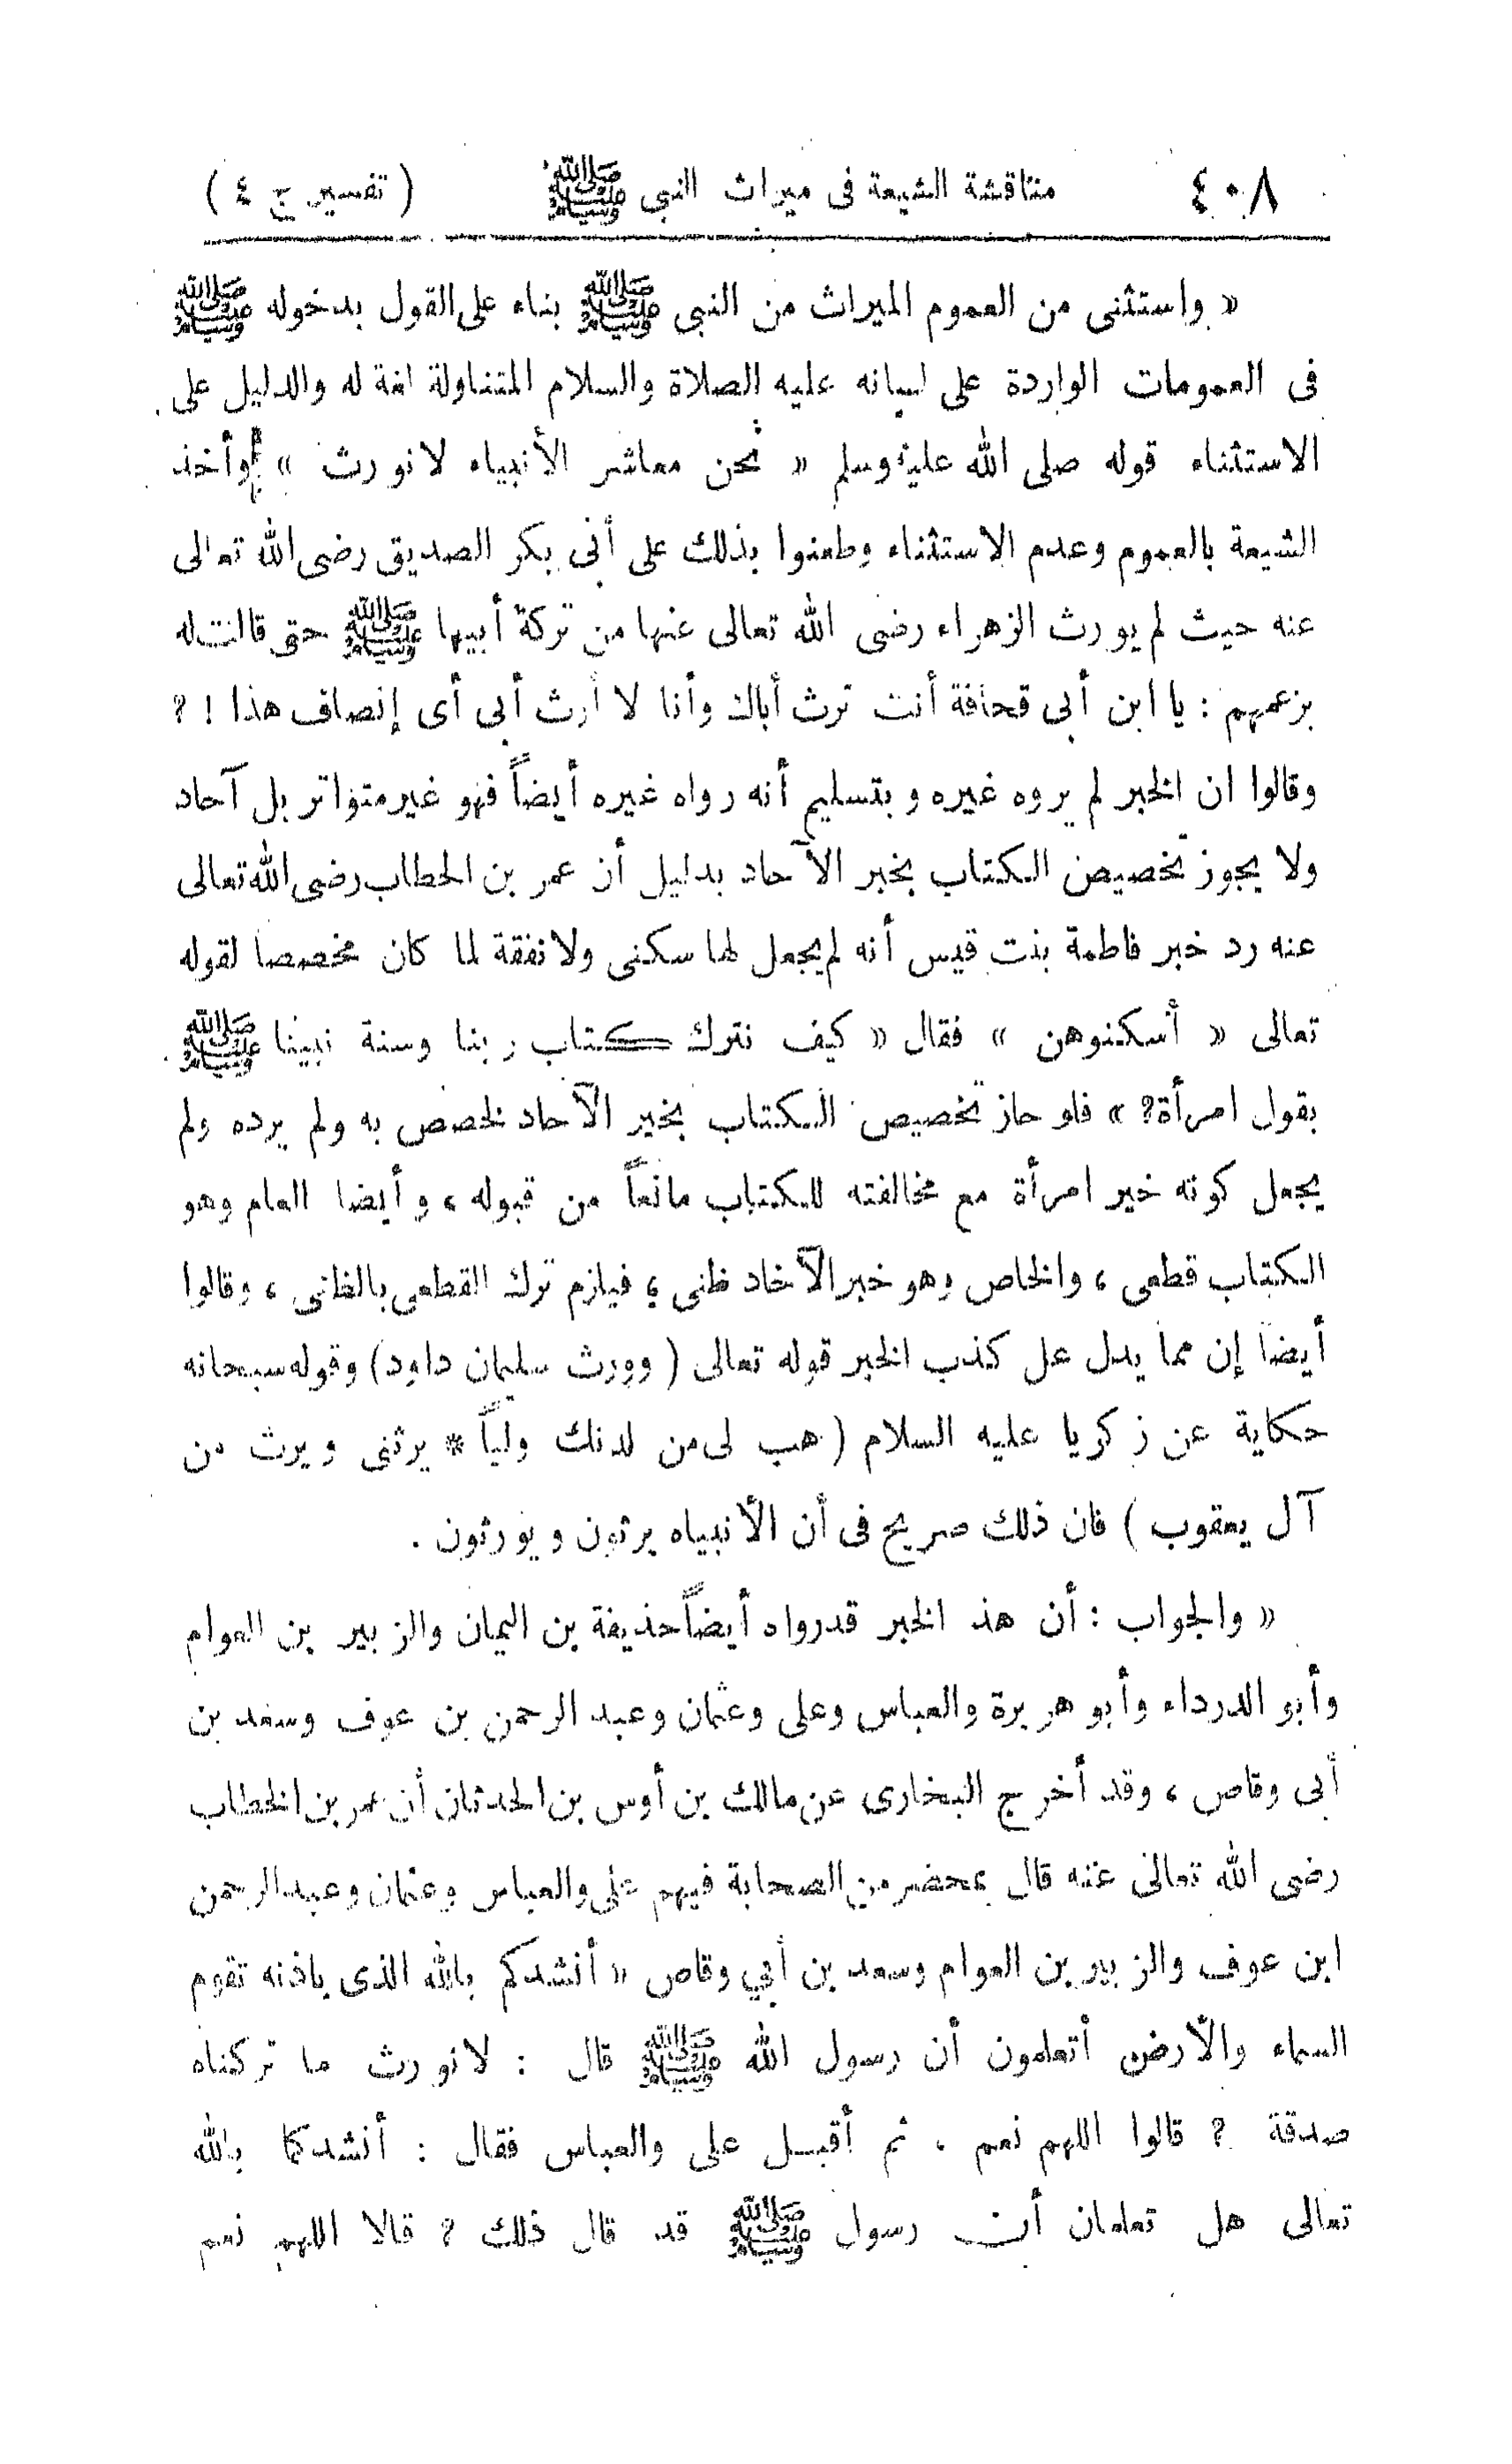 ٤٠٨ مناقشة الشيعة فى ميراث النبى ﷺ ( تفسير ج ٤ )
« واستثنى من العموم الميراث من النبى ﷺ بناء على القول بدخوله ﷺ
فى العمومات الواردة على لسانه عليه الصلاة والسلام المتناولة لغة له والدليل على
الاستثناء قوله صلى الله عليه وسلم « نحن معاشر الأنبياء لا نورث » وأخذ
الشيعة بالعموم وعدم الاستثناء وطعنوا بذلك على أبى بكر الصديق رضى الله تعالى
عنه حيث لم يورث الزهراء رضى الله تعالى عنها من تركة أبيها ﷺ حتى قالت له
بزعمهم : يا ابن أبى قحافة أنت ترث أباك وأنا لا أرث أبى أى إنصاف هذا ! ?
وقالوا ان الخبر لم يروه غيره وبتسليم أنه رواه غيره أيضاً فهو غير متواتر بل آحاد
ولا يجوز تخصيص الكتاب بخبر الآحاد بدليل أن عمر بن الخطاب رضى الله تعالى
عنه رد خبر فاطمة بنت قيس أنه لم يجعل لها سكنى ولا نفقة لما كان مخصصا لقوله
تعالى « أسكنوهن » فقال « كيف نترك كتاب ربنا وسنة نبينا ﷺ
بقول امرأة? » فلو جاز تخصيص الكتاب بخبر الآحاد لخصص به ولم يرده ولم
يجعل كونه خبر امرأة مع مخالفته للكتاب مانعاً من قبوله ، وأيضا العام وهو
الكتاب قطعى ، والخاص وهو خبر الآحاد ظنى ، فيلزم ترك القطعى بالظنى ، وقالوا
أيضا إن مما يدل على كذب الخبر قوله تعالى ( وورث سليمان داود ) وقوله سبحانه
حكاية عن زكريا عليه السلام ( هب لى من لدنك ولياً * يرثنى ويرث من
آل يعقوب ) فان ذلك صريح فى أن الأنبياء يرثون ويورثون .
« والجواب : أن هذ الخبر قد رواه أيضاً حذيفة بن اليمان والزبير بن العوام
وأبو الدرداء وأبو هريرة والعباس وعلى وعثمان وعبد الرحمن بن عوف وسعد بن
أبى وقاص ، وقد أخرج البخارى عن مالك بن أوس بن الحدثان أن عمر بن الخطاب
رضى الله تعالى عنه قال بمحضر من الصحابة فيهم على والعباس وعثمان وعبد الرحمن
ابن عوف والزبير بن العوام وسعد بن أبي وقاص « أنشدكم بالله الذى باذنه تقوم
السماء والأرض أتعلمون أن رسول الله ﷺ قال : لا نورث ما تركناه
صدقة ? قالوا اللهم نعم ، ثم أقبل على على والعباس فقال : أنشدكما بالله
تعالى هل تعلمان أن رسول ﷺ قد قال ذلك ? قالا اللهم نعم